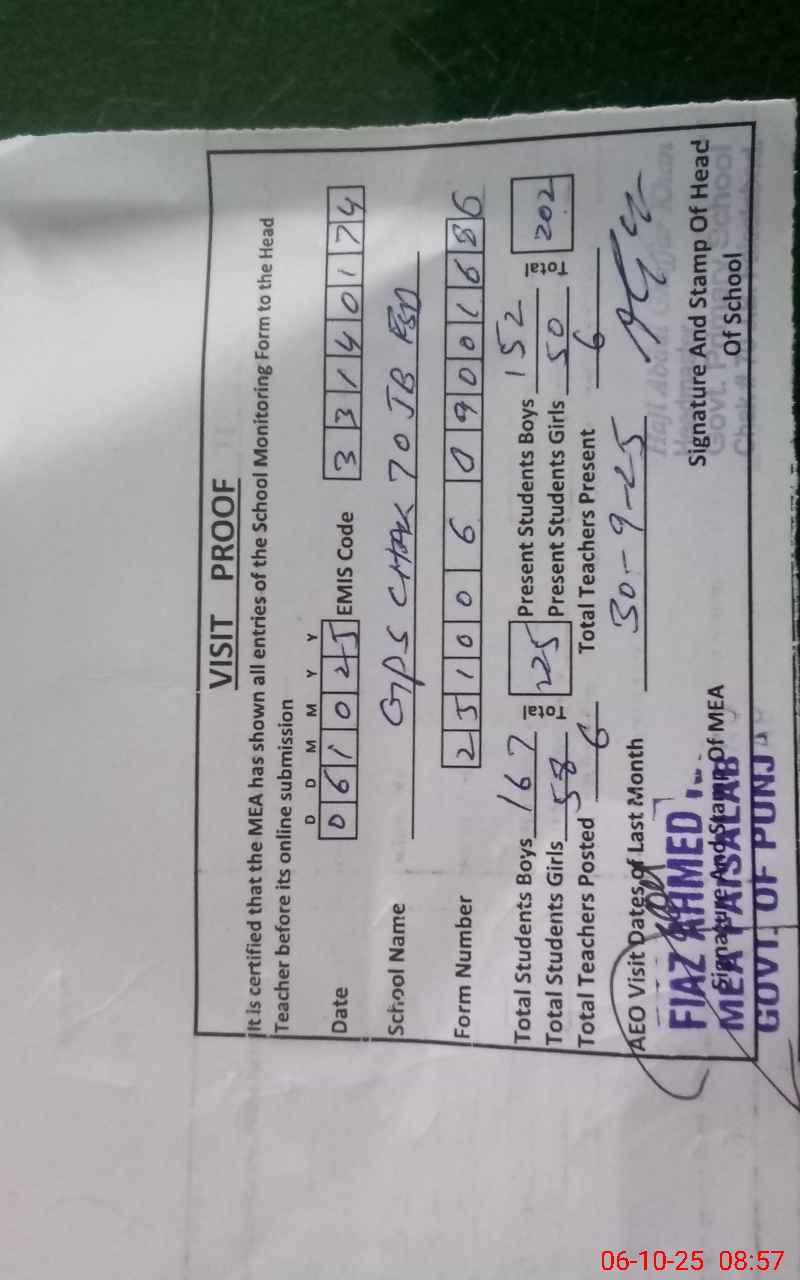 VISIT PROOF
It is certified that the MEA has shown all entries of the School Monitoring Form to the Head
Teacher before its online submission
D D M M Y Y
Date 0 6 1 0 2 5 EMIS Code 3 3 1 4 0 1 7 4
School Name GPS CHAK 70 JB FSD
Form Number 2 5 1 0 0 6 0 9 0 0 1 6 8 6
Total Students Boys 167 Total 225 Present Students Boys 152 Total 202
Total Students Girls 58 Present Students Girls 50
Total Teachers Posted 6 Total Teachers Present 6
AEO Visit Dates of Last Month 30-9-25
Signature And Stamp Of MEA
FIAZ AHMED
MEA FAISALAB
GOVT. OF PUNJ
Signature And Stamp Of Head
Of School
Headmaster
Govt. Primary School
06-10-25 08:57